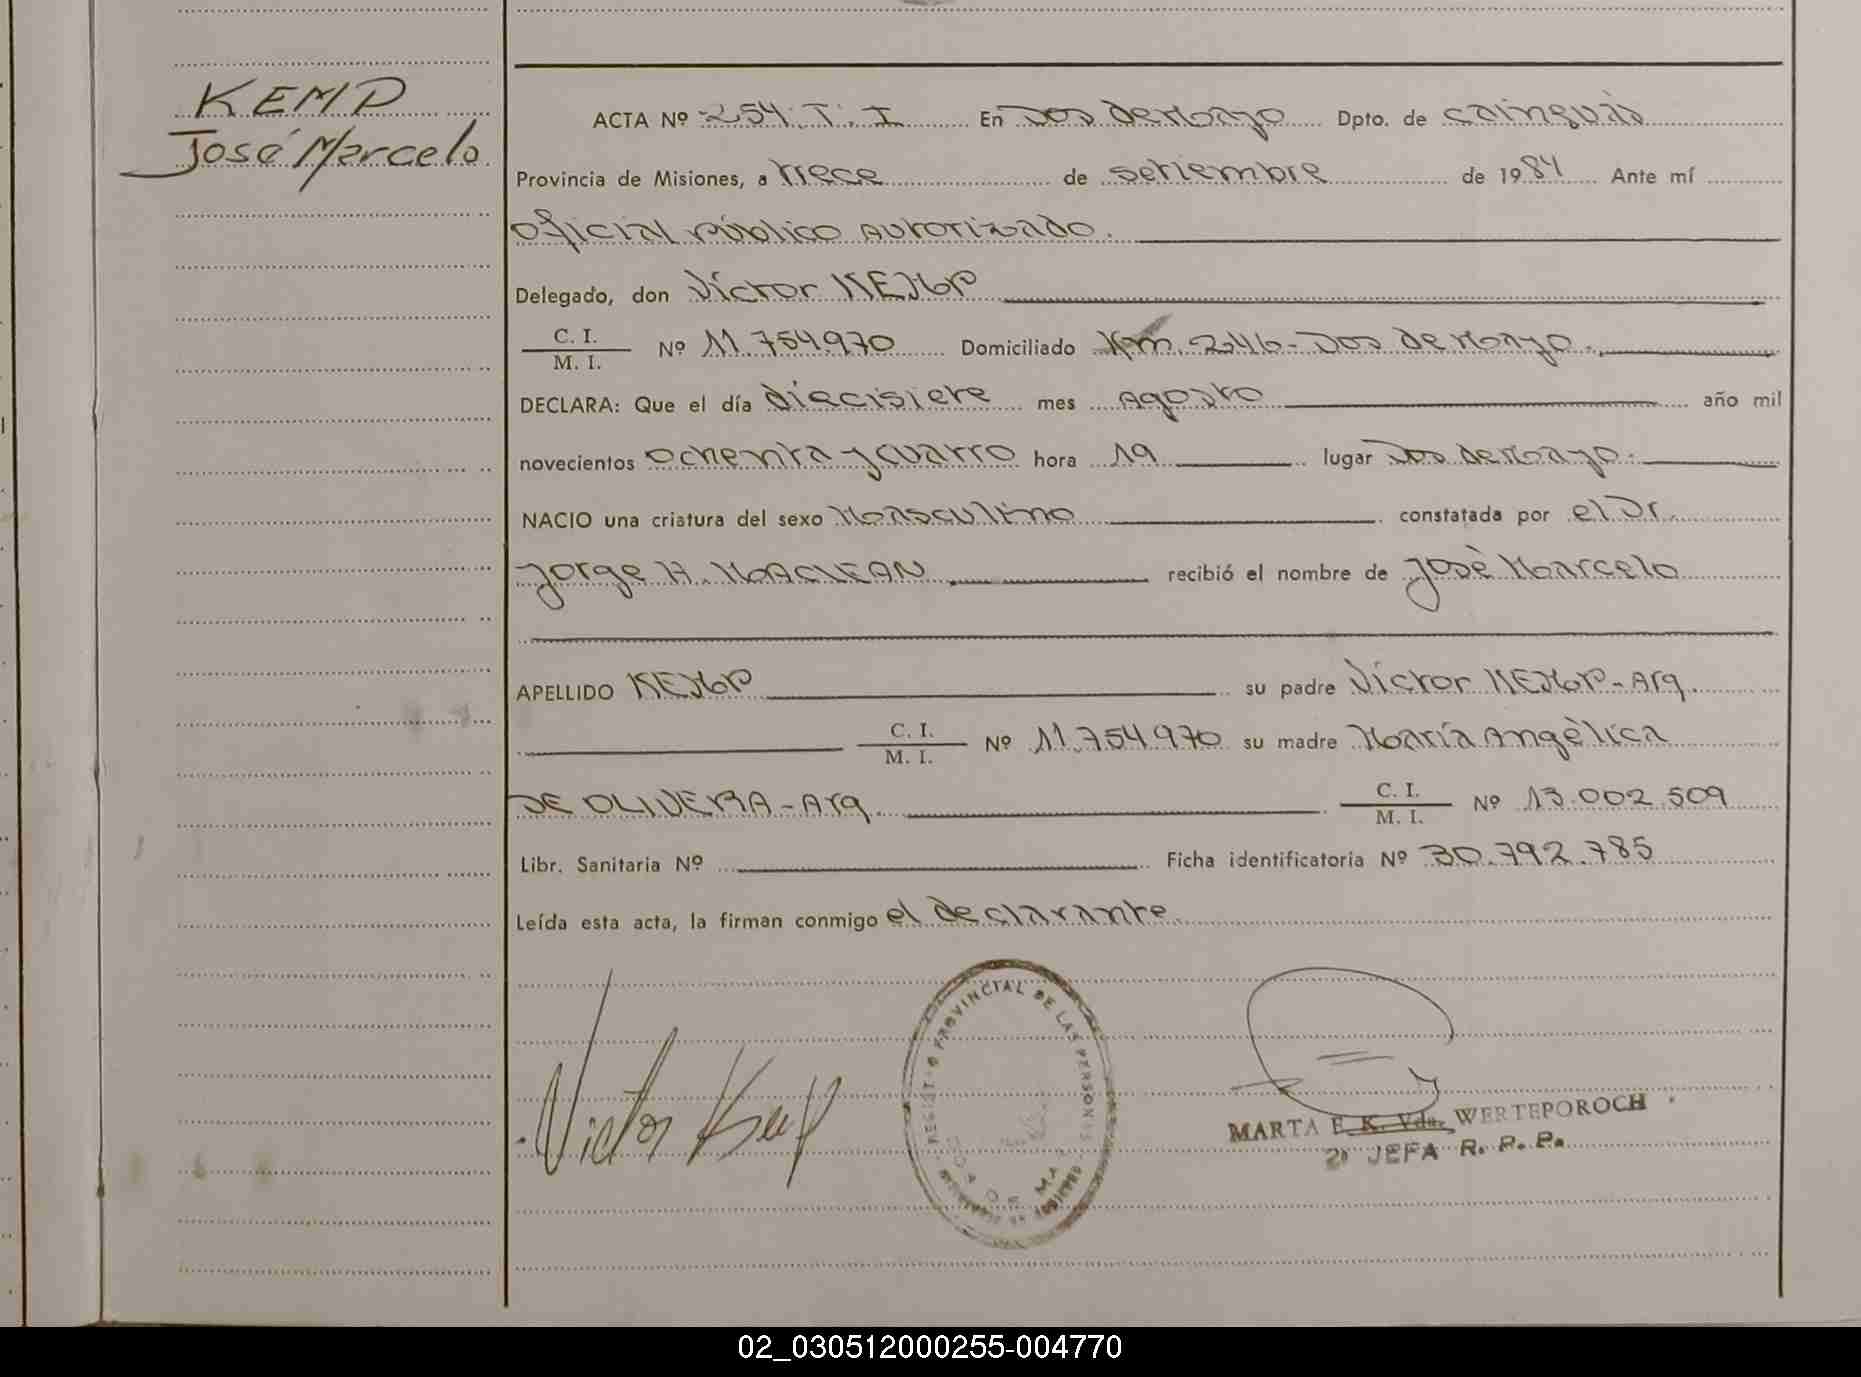 KEMP
José Marcelo
ACTA Nº 254. T. I En Dos de Mayo Dpto. de Cainguás
Provincia de Misiones, a trece de setiembre de 1984 Ante mí
Oficial público Autorizado.
Delegado, don Víctor KEMP
C. I. / M. I. Nº 11.754.970 Domiciliado Km. 246 - Dos de Mayo.
DECLARA: Que el día diecisiete mes Agosto año mil
novecientos ochenta y cuatro hora 19 lugar Dos de Mayo.
NACIO una criatura del sexo Masculino constatada por el Dr.
Jorge H. MACLEAN recibió el nombre de José Marcelo
APELLIDO KEMP su padre Víctor KEMP - Arg.
C. I. / M. I. Nº 11.754.970 su madre María Angèlica
DE OLIVEIRA - Arg. C. I. / M. I. Nº 13.002.509
Libr. Sanitaria Nº Ficha identificatoria Nº 30.792.785
Leída esta acta, la firman conmigo el declarante
Victor Kemp
PROVINCIAL DE LAS PERSONAS
MARTA E. K. Vda. WERTEPOROCH
JEFA R. P. P.
02_030512000255-004770